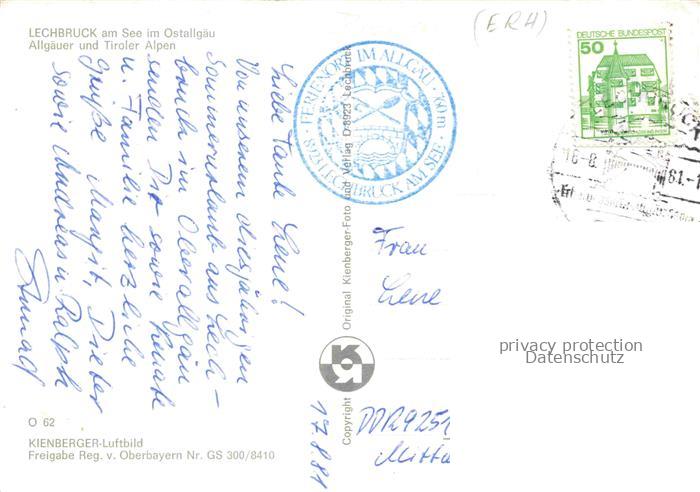 LECHBRUCK am See im Ostallgäu
Allgäuer und Tiroler Alpen
(ERH)
DEUTSCHE BUNDESPOST
50
FERIENORT IM ALLGÄU
8923 LECHBRUCK AM SEE
Liebe Tante Lene!
Von unserem diesjährigen
Sommerurlaub aus Lech-
bruck im Oberallgäu
senden Dir sowie Renate
u. Familie herzliche
Grüße Margit, Dieter
sowie Andreas u. Ralph
17.8.81
Copyright
Original Kienberger-Foto und Verlag D-8923 Lechbruck
Frau
Lene
DDR 925
privacy protection
Datenschutz
O 62
KIENBERGER-Luftbild
Freigabe Reg. v. Oberbayern Nr. GS 300/8410